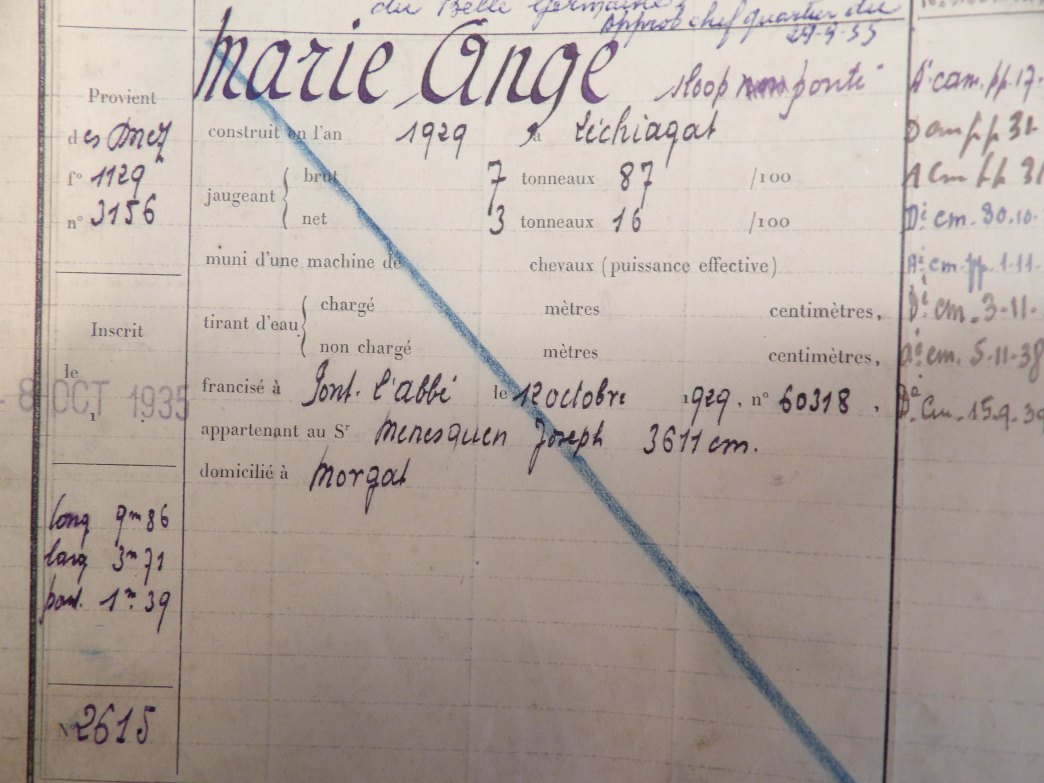 du Belle Germaine
Approb chef quartier du
29-9-35
Marie Ange sloop ponté
Provient
des
f° 1129
n° 3156
construit en l'an 1929 à Léchiagat
jaugeant
brut 7 tonneaux 87 /100
net 3 tonneaux 16 /100
muni d'une machine de chevaux (puissance effective)
tirant d'eau
chargé mètres centimètres,
non chargé mètres centimètres,
Inscrit
le
8 OCT 1935
1
francisé à Pont. l'abbé le 12 octobre 1929, n° 60318,
appartenant au Sr Menesguen Joseph 3611 cm.
domicilié à Morgat
long 9m86
larg 3m71
1m.39
N° 2615
Ai cam. pp. 17-
D am pp 31-
A Cm pp 31
Di cm. 30.10-
Ai cm. pp. 1.11.
Di cm. 3-11-
ai cm. 5-11-38
Di Cm. 15.9.39